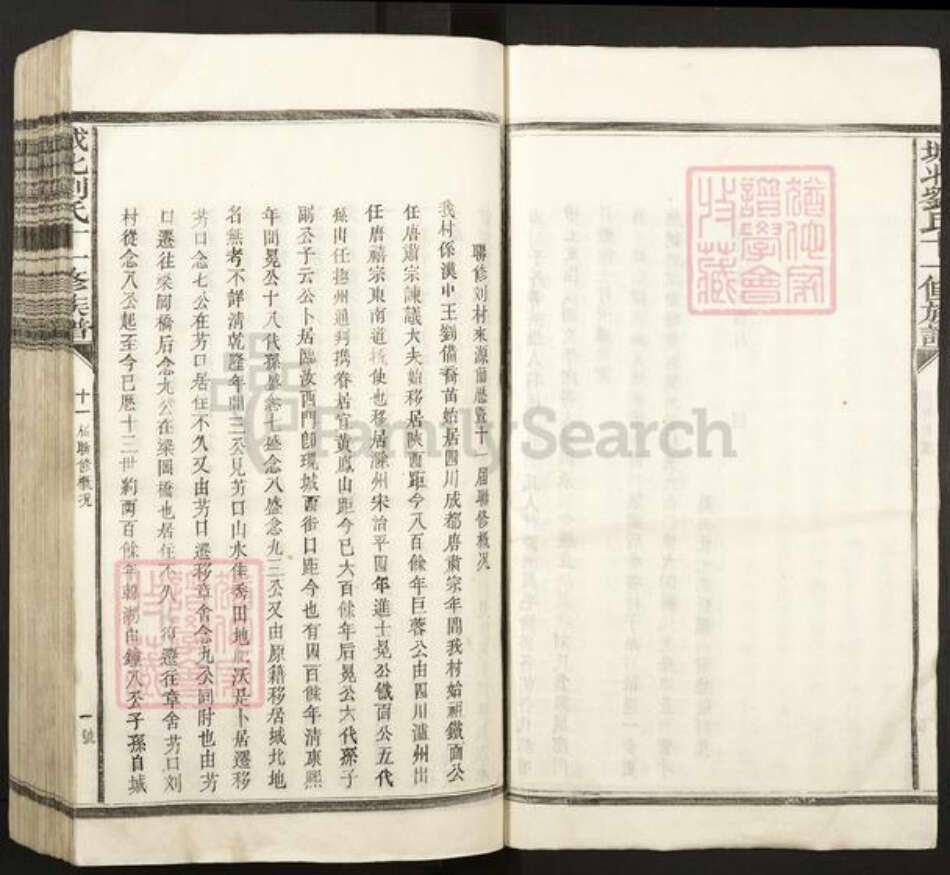 城北劉氏十一修族譜
猶他家
譜學會
收藏
聯修刘村來源簡歷暨十一屆聯修概况
我村係漢中王劉備裔苗始居四川成都唐肅宗年間我村始祖鐵面公
任唐肅宗諫議大夫始移居陜西距今八百餘年巨蓉公由四川瀘州出
任唐禧宗東南道 使也移居滁州宋治平四年進士晃公鐵面公五代
孫出任撫州通判携眷居官黃鳳山距今已大百餘年后晃公六代孫子
嗣公子云公卜居臨汝西門卽現城西街口距今也有四百餘年清康熙
年間晃公十八代孫盛念七盛念八盛念九三公又由原籍移居城北地
名無考不詳清乾隆年間三公見艻口山水佳秀田地 沃是卜居遷移
艻口念七公在艻口居住不久又由艻口遷移章舍念九公同时也由艻
口遷往梁岡橋后念九公在梁岡橋也居住不久 遷往章舍艻口刘
村從念八公起至今已歷十二世約两百餘年 湖由鐘八公子孫自城
城北刘氏十一修族譜
十一屆聯修概况
一號
FamilySearch